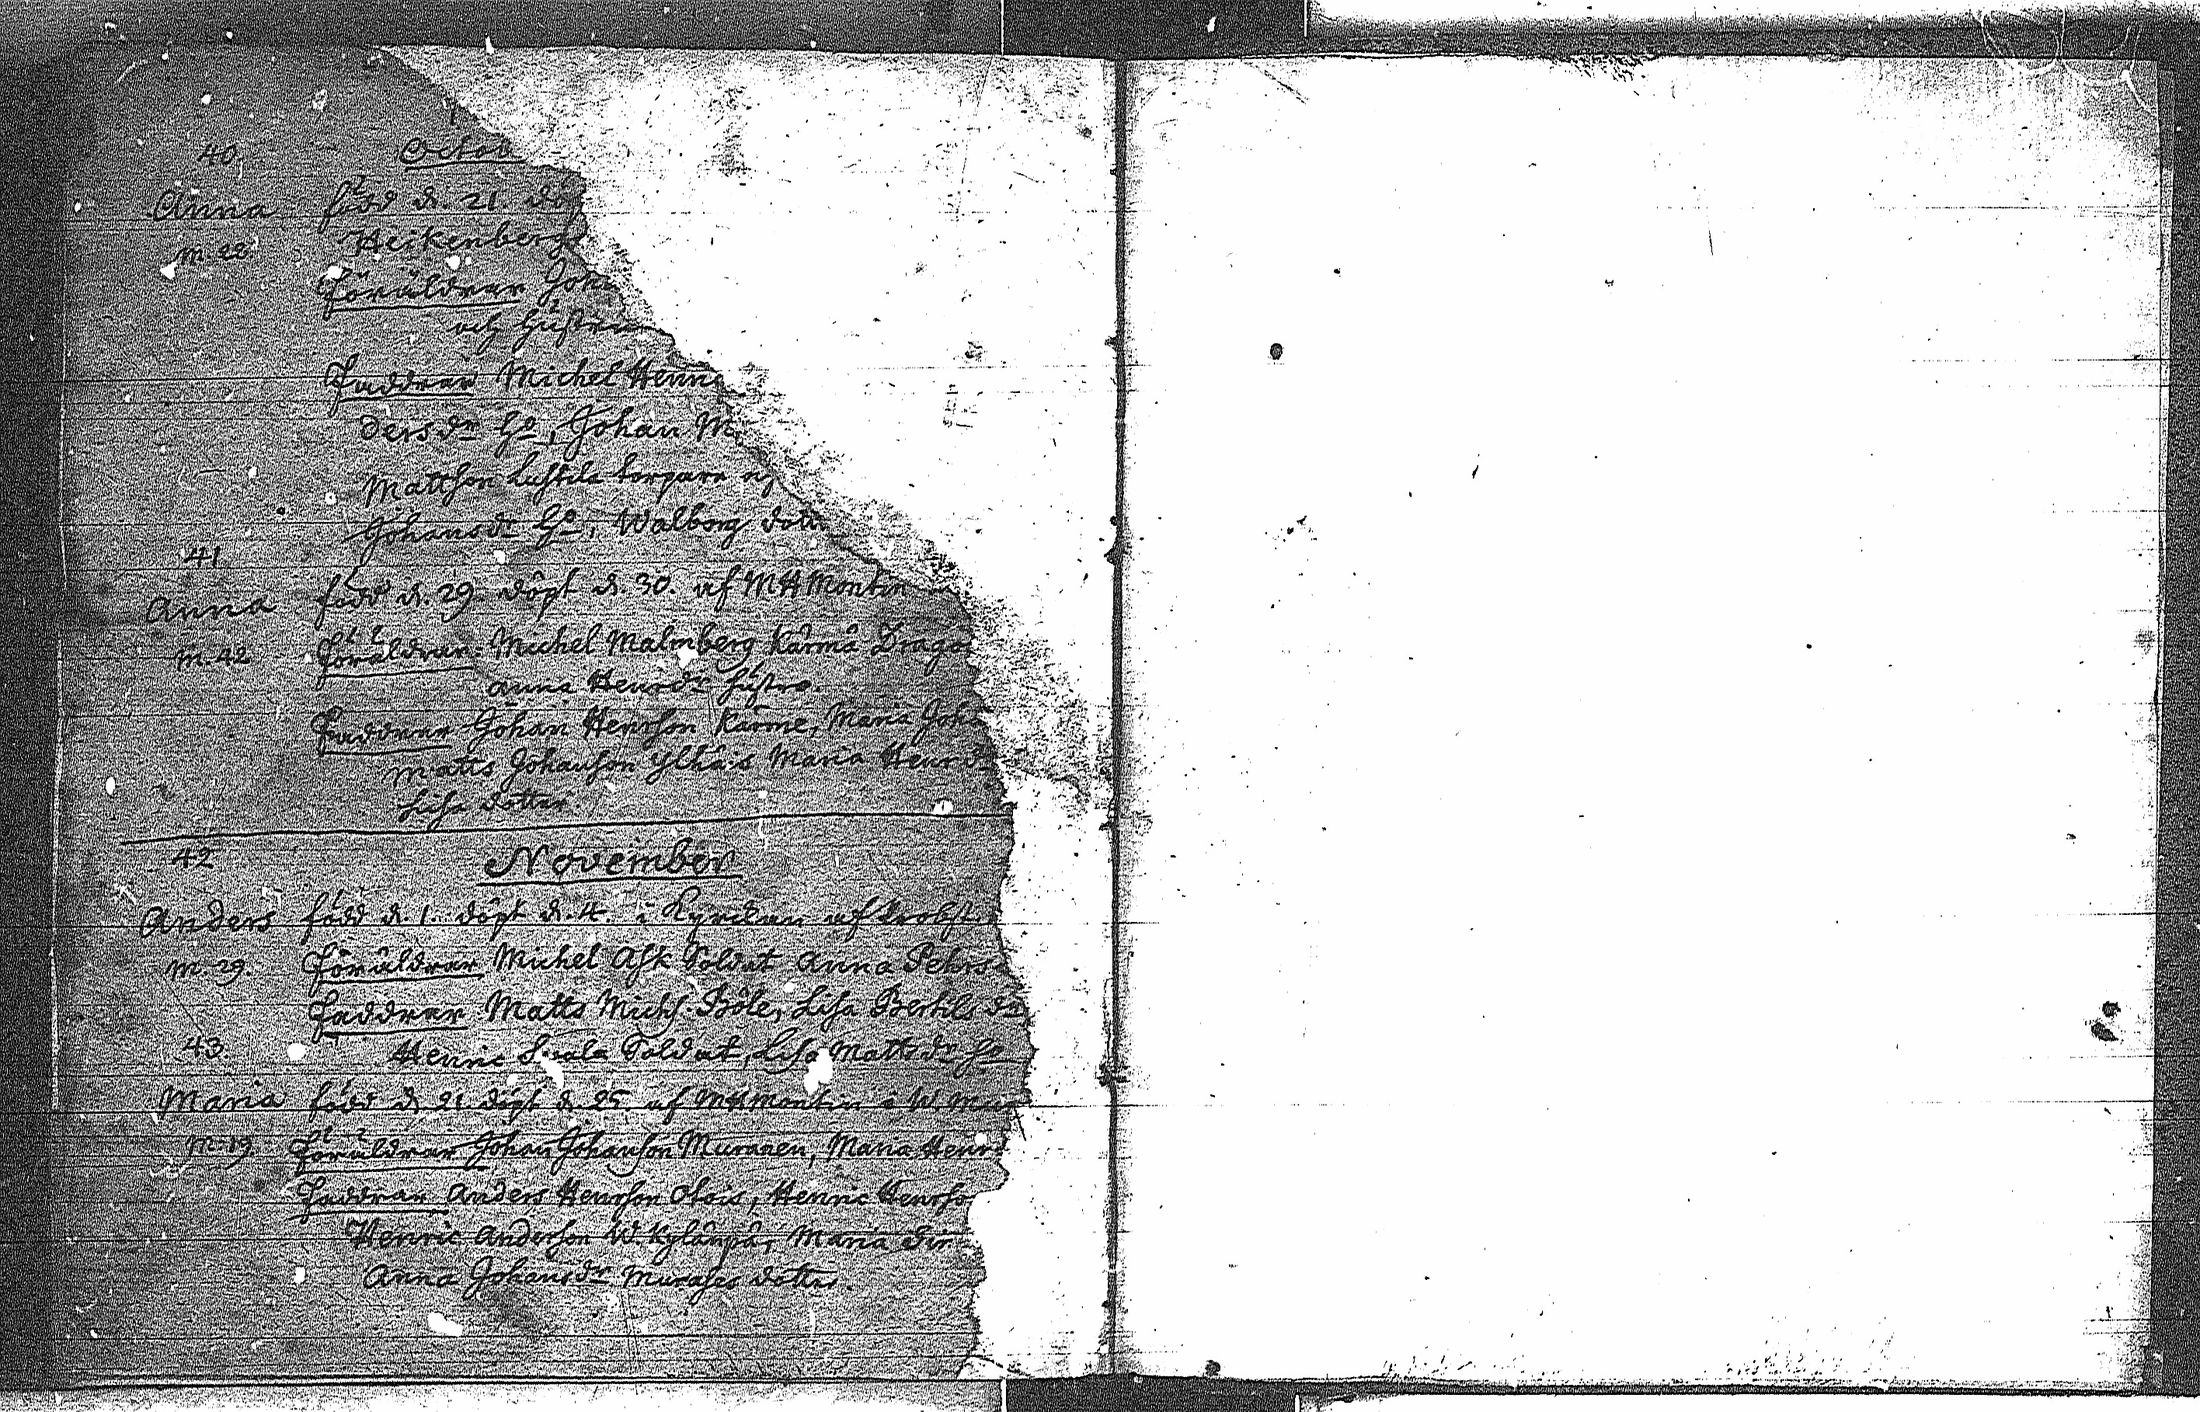 40.
Octob
Anna född d. 21. döp
m. 22 Heikenberg
Föräldrar Joh
och hustru
Faddrar Michel Henri
dersdr ho, Johan M
Matthson torpare och
Johansdr ho, Walborg dott
41
Anna född d. 29. döpt d. 30. af MHMontin
m. 42 Föräldrar. Michel Malmberg Kärmä Drago
Anna Henrsdr hustro.
Faddrar Johan Henrson Kärme, Maria Joha
Matts Johanson Maria Henrsdr
Lisa dotter.
42
November
Anders född d. 1. döpt d. 4. i Kyrckan af Probst
m. 29. Föräldrar Michel Ask Soldat Anna Pehrs
Faddrar Matts Michs. Böle, Lisa Bertils dr
43.
Henric Soldat, Lisa Mattsdr ho
Maria född d. 21 döpt d. 25. af MHMontin i W.
m. 19. Föräldrar Johan Johanson Muranen, Maria Henrs
Faddrar Anders Henrson Henric Henrson
Henric Anderson W. Kylänpä, Maria
Anna Johansdr dotter.